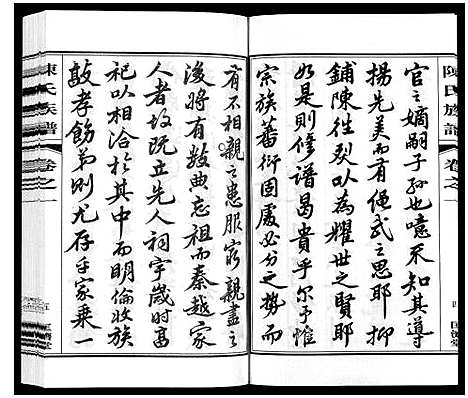 陳氏族譜
卷之一
官之嫡嗣子孫也噫不知其導
揚先美而有繩武之思耶抑
鋪陳往烈以為耀世之賢耶
如是則修譜曷貴乎尔予惟
宗族蕃衍固處必分之勢而
有不相親之患服窮親盡之
後將有數典忘祖而秦越家
人者故既立先人祠宇歲時享
祀以相洽於其中而明倫收族
敦孝飭弟則尤存乎家乘一
陳氏族譜
卷之一